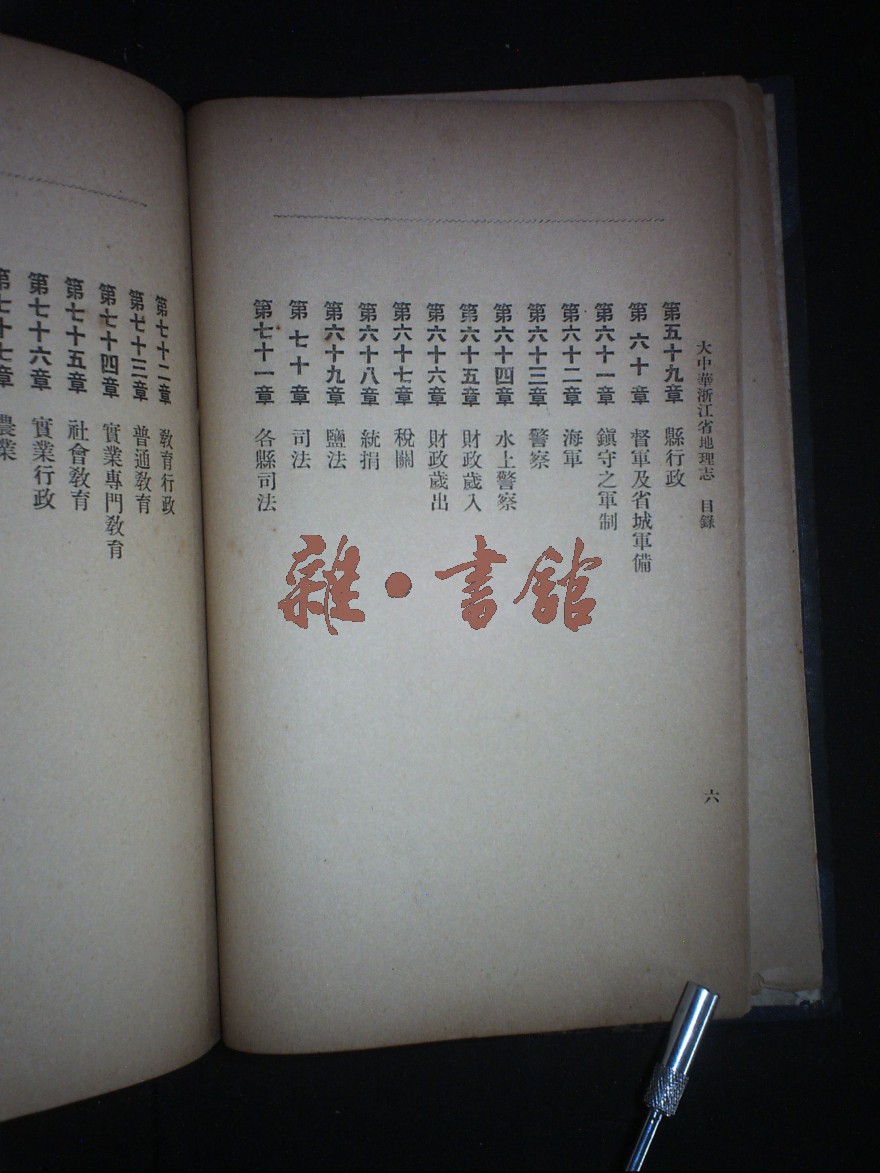 大中華浙江省地理志　目錄
第五十九章　縣行政
第六十章　督軍及省城軍備
第六十一章　鎮守之軍制
第六十二章　海軍
第六十三章　警察
第六十四章　水上警察
第六十五章　財政歲入
第六十六章　財政歲出
第六十七章　稅關
第六十八章　統捐
第六十九章　鹽法
第七十章　司法
第七十一章　各縣司法
六
第七十二章　教育行政
第七十三章　普通教育
第七十四章　實業專門教育
第七十五章　社會教育
第七十六章　實業行政
第七十七章　農業
雜·書館